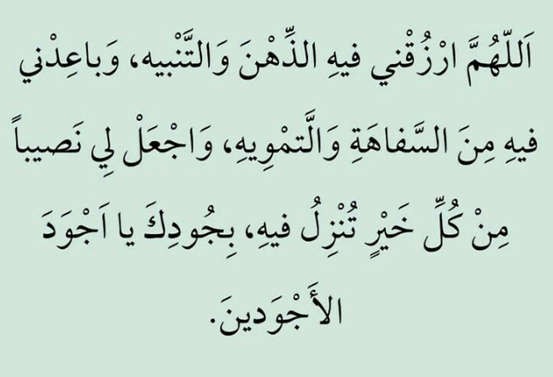 اَللّهُمَّ ارْزُقْني فيهِ الذِّهْنَ وَالتَّنْبيه، وَباعِدْني
فيهِ مِنَ السَّفاهَةِ وَالَّتمْوِيهِ، وَاجْعَلْ لِي نَصيباً
مِنْ كُلِّ خَيْرٍ تُنْزِلُ فيهِ، بِجُودِكَ يا اَجْوَدَ
الأَجْوَدينَ.